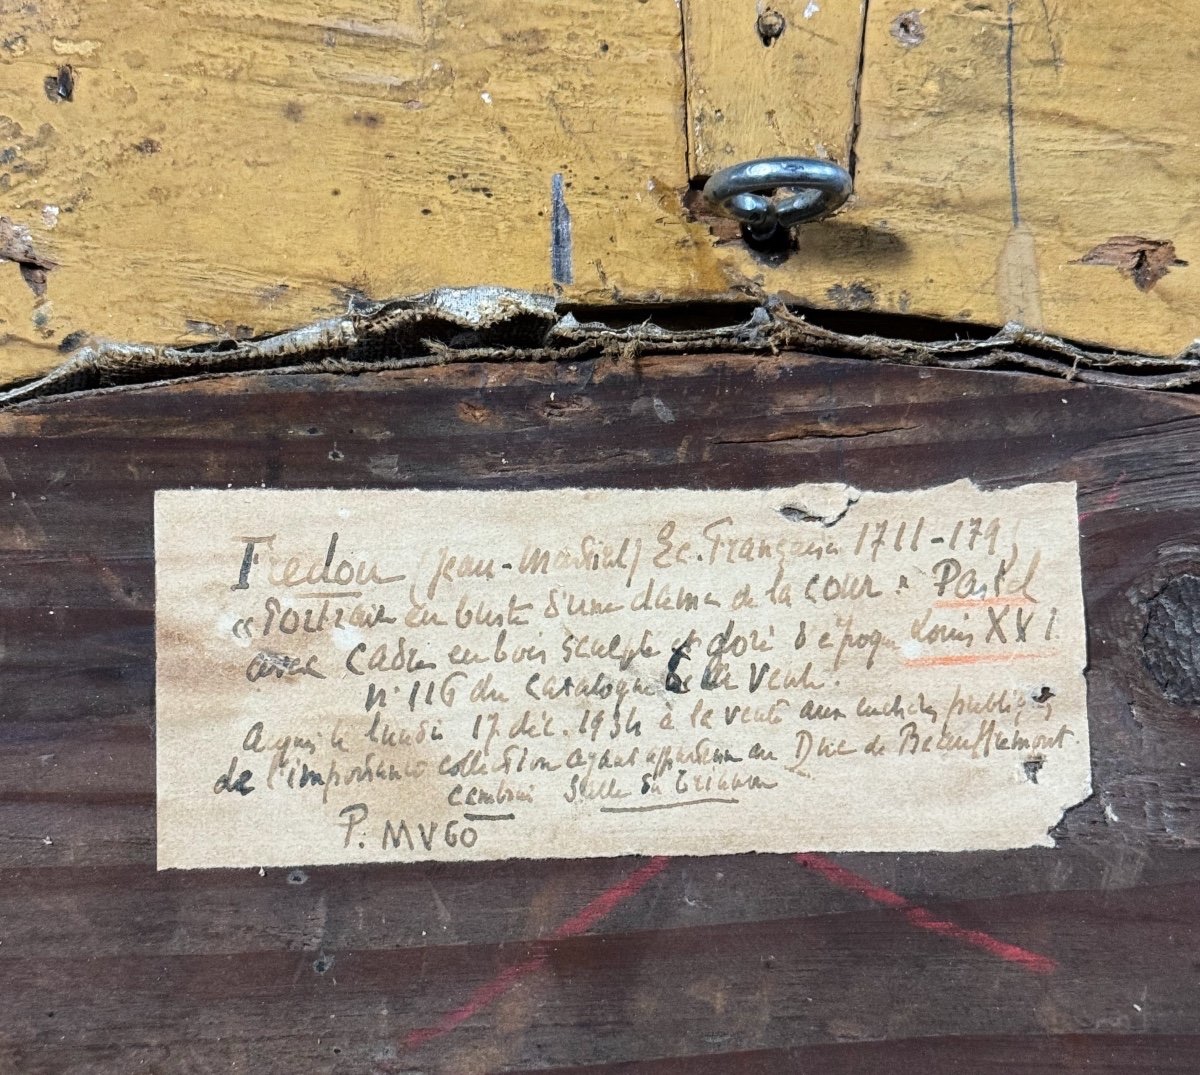 Fredou (Jean-Martial) Ec. Française 1711-179
« Portrait en buste d'une dame de la cour » Pastel
avec cadre en bois sculpté et doré d'époque Louis XVI
n° 116 du catalogue de la vente.
Acquis le lundi 17 déc. 1934 à la vente aux enchères publiques
de l'importante collection ayant appartenu au Duc de Beauffremont.
Salle du Trianon
P. MVGO